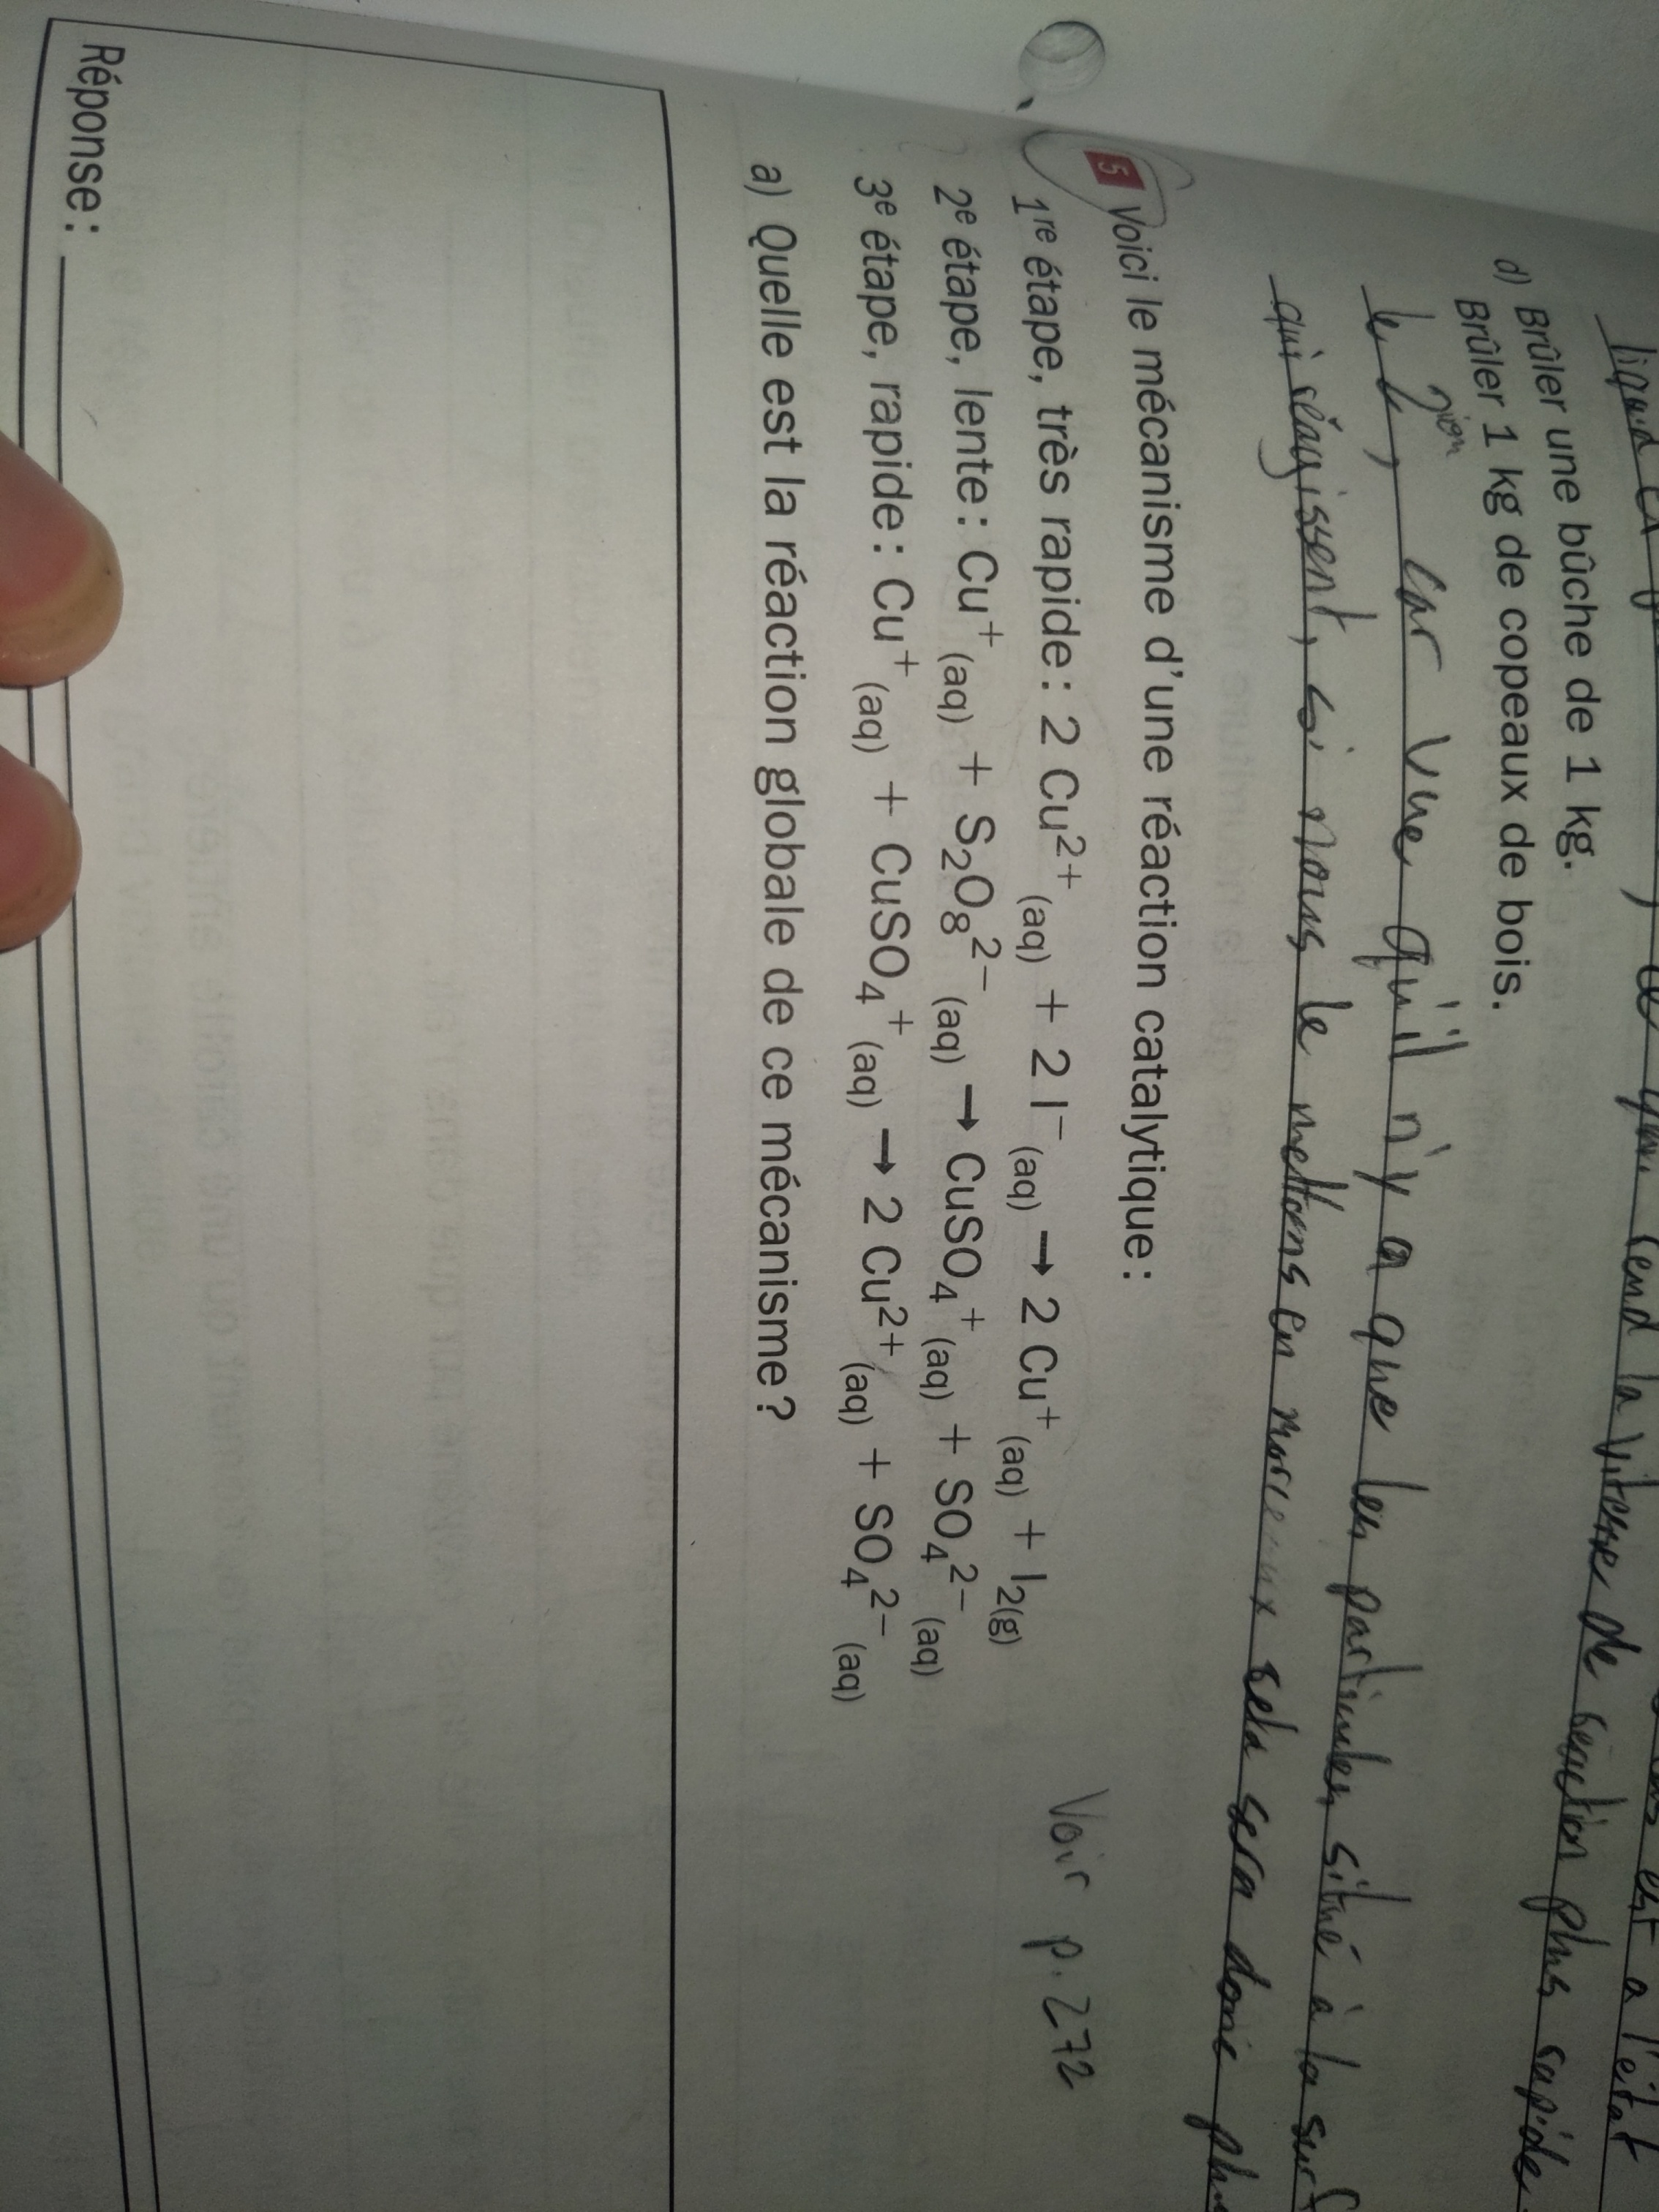 liquid
d) Brûler une bûche de 1 kg.
Brûler 1 kg de copeaux de bois.
car vue qu'il n'y a que les particules situé à la surf
qui réagissent, si nous le mettons en morceaux sela sera donc plu
5 Voici le mécanisme d'une réaction catalytique :
1re étape, très rapide : 2 Cu²⁺(aq) + 2 I⁻(aq) → 2 Cu⁺(aq) + I₂(g)
Voir p.272
2e étape, lente : Cu⁺(aq) + S₂O₈²⁻(aq) → CuSO₄⁺(aq) + SO₄²⁻(aq)
3e étape, rapide : Cu⁺(aq) + CuSO₄⁺(aq) → 2 Cu²⁺(aq) + SO₄²⁻(aq)
a) Quelle est la réaction globale de ce mécanisme ?
Réponse :